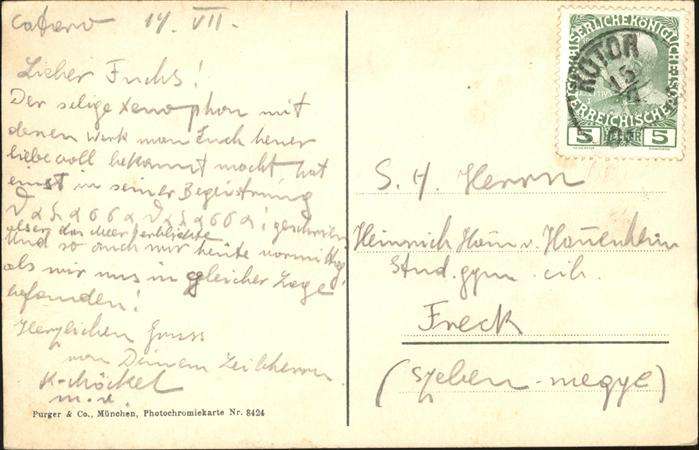 Cattaro 14. VII.
Lieber Fuchs!
Der selige Xenophon mit
denen Werk man Euch heuer
liebevoll bekannt macht, hat
einst in seiner Begeisterung
ϑαλασσα, ϑαλασσα! geschrieen
als er das Meer erblickte
Und so auch mir heute vormittag
als wir uns in gleicher Lage
befanden!
Herzlichen Gruss
von Deinem Leibherrn
m.v.
Purger & Co., München, Photochromiekarte Nr. 8424
KOTOR
15
5 5
S. H. Herrn
Heinrich Hain v. Hauenhein
Stud. gym. cib.
Freck
(Szeben-megye)